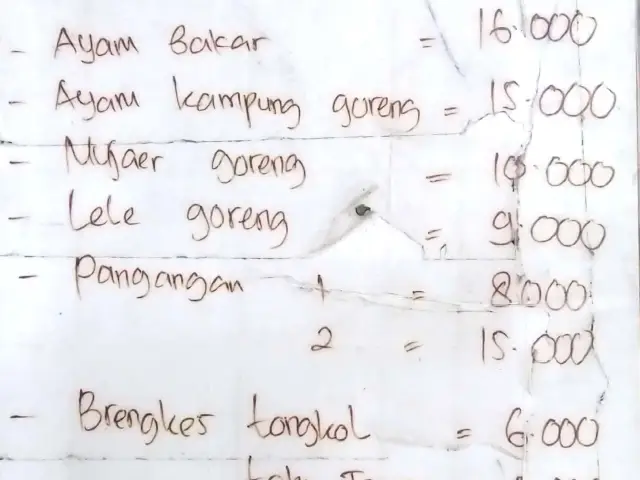 - Ayam Bakar = 16.000
- Ayam kampung goreng = 15.000
- Mujaer goreng = 10.000
- Lele goreng = 9.000
- Pangangan 1 = 8.000
2 = 15.000
- Brengkes tongkol = 6.000